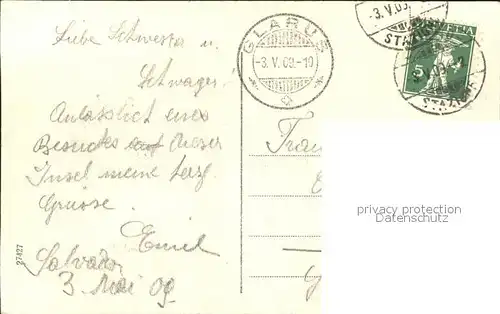 Liebe Schwester u.
Schwager!
Anlässlich eines
Besuches auf dieser
Insel meine herzl.
Grüsse.
Emil
Salvador
3 Mai 09
27427
GLARUS
-3.V.09.-10
-3.V.09.
STATION
HELVETIA
5
STATION
Frau
privacy protection
Datenschutz